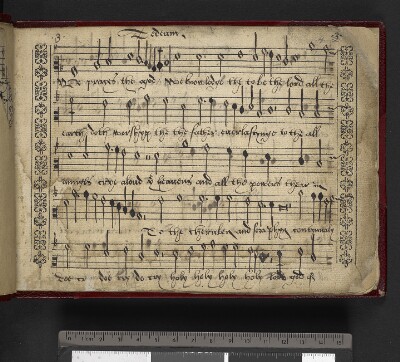 Te deum
We prayse the god We knowledge the to be the lord all the
earth doth worshypp the the father everlastynge to the all
aungels crye aloud the heavens and all the powers therin
To the cherubin and seraphyn contynually
doe cry doe cry holy holy holy holy lord god of